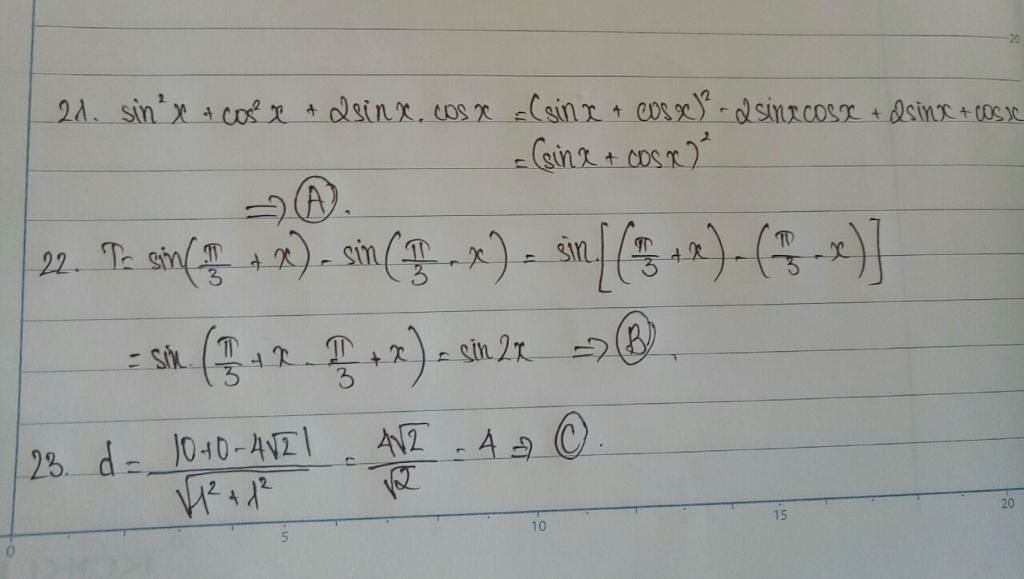 20
21. sin²x + cos²x + 2sinx.cosx = (sinx + cosx)² - 2sinxcosx + 2sinx + cosx
= (sinx + cosx)²
⇒ Ⓐ.
22. T = sin(π/3 + x) - sin(π/3 - x) = sin.[(π/3 + x) - (π/3 - x)]
= sin.(π/3 + x - π/3 + x) = sin2x ⇒ Ⓑ.
23. d = |0+0-4√2| / √1²+1² = 4√2/√2 = 4 ⇒ Ⓒ.
0 5 10 15 20